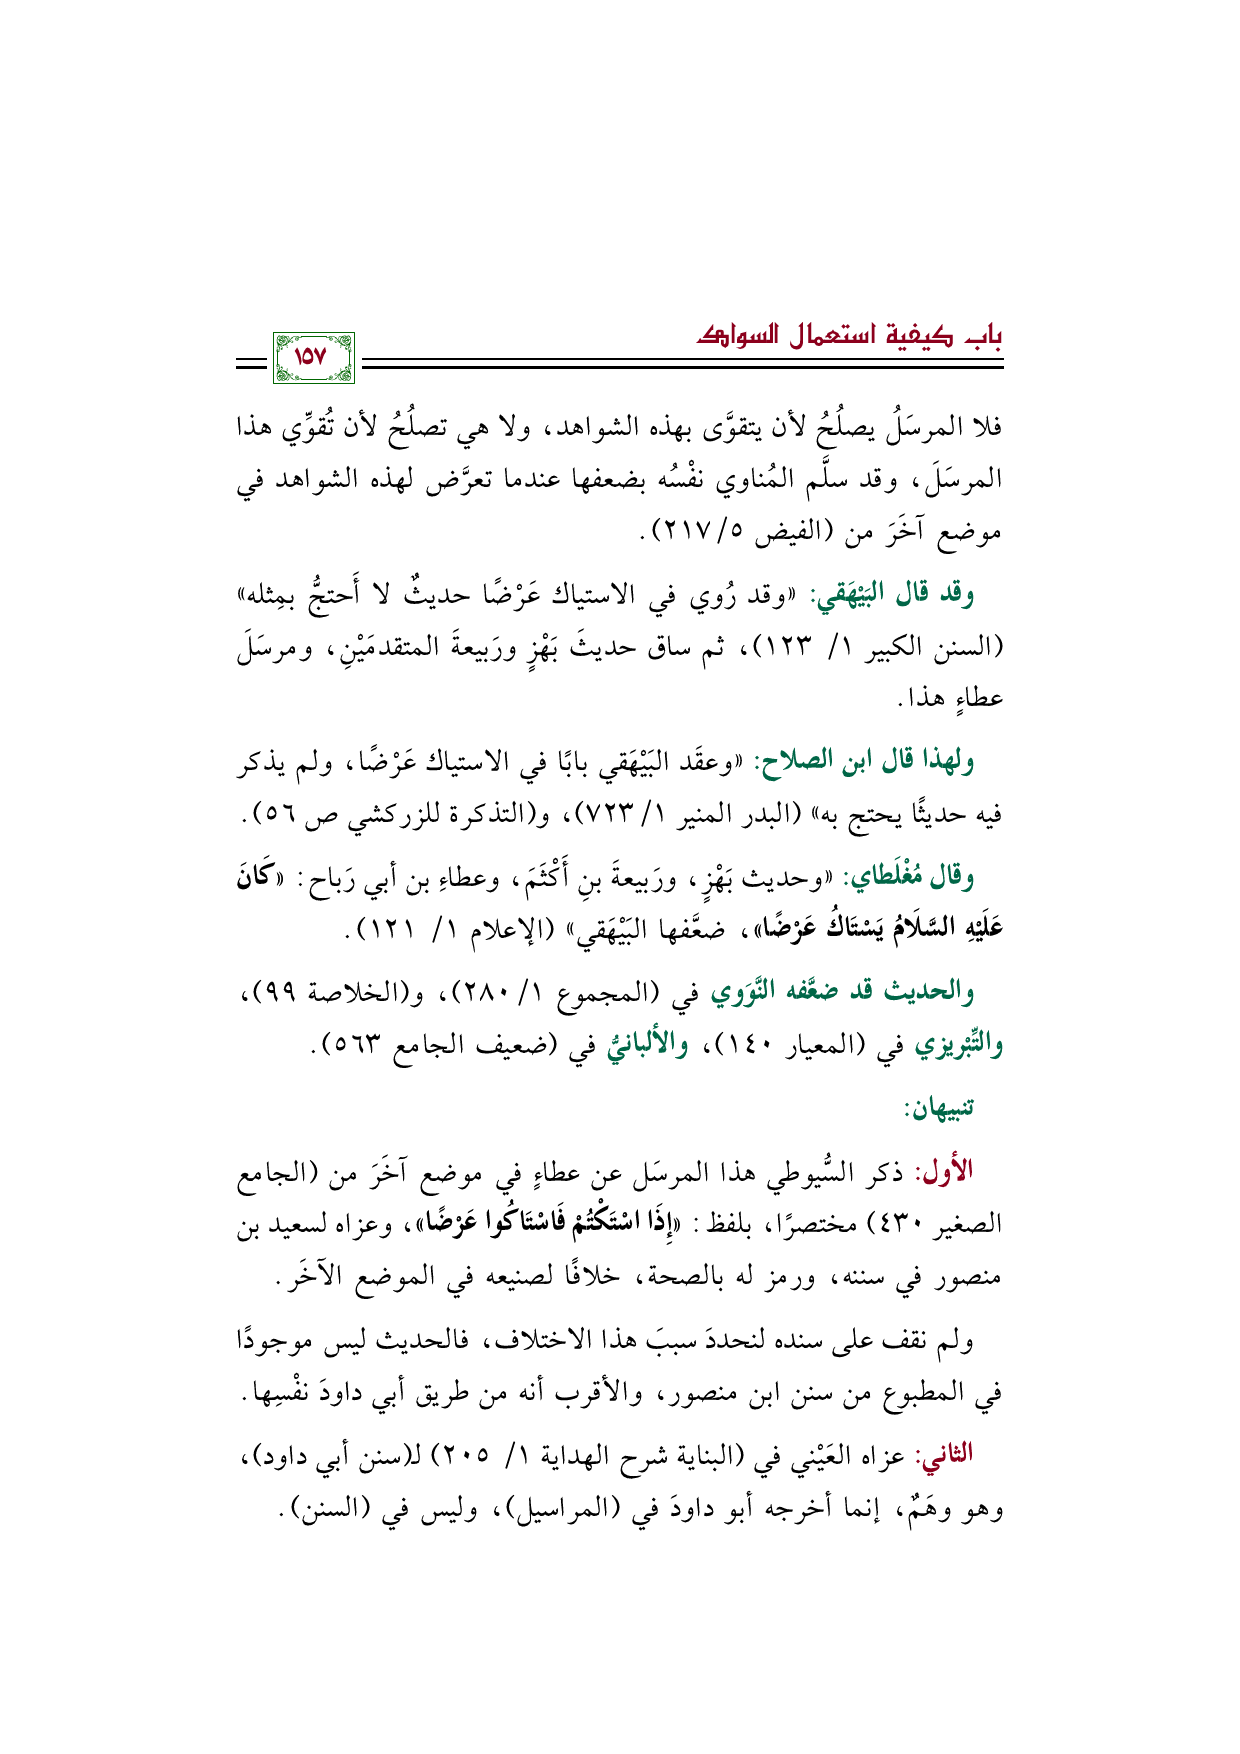 باب كيفية استعمال السواك
١٥٧
فلا المرسَلُ يصلُحُ لأن يتقوَّى بهذه الشواهد، ولا هي تصلُحُ لأن تُقوِّي هذا
المرسَلَ، وقد سلَّم المُناوي نفْسُه بضعفها عندما تعرَّض لهذه الشواهد في
موضع آخَرَ من (الفيض ٥/ ٢١٧).
وقد قال البَيْهَقي: «وقد رُوي في الاستياك عَرْضًا حديثٌ لا أَحتجُّ بمِثله»
(السنن الكبير ١/ ١٢٣)، ثم ساق حديثَ بَهْزٍ ورَبيعةَ المتقدمَيْنِ، ومرسَلَ
عطاءٍ هذا.
ولهذا قال ابن الصلاح: «وعقَد البَيْهَقي بابًا في الاستياك عَرْضًا، ولم يذكر
فيه حديثًا يحتج به» (البدر المنير ١/ ٧٢٣)، و(التذكرة للزركشي ص ٥٦).
وقال مُغْلَطاي: «وحديث بَهْزٍ، ورَبيعةَ بنِ أَكْثَمَ، وعطاءِ بن أبي رَباح: «كَانَ
عَلَيْهِ السَّلَامُ يَسْتَاكُ عَرْضًا»، ضعَّفها البَيْهَقي» (الإعلام ١/ ١٢١).
والحديث قد ضعَّفه النَّوَوي في (المجموع ١/ ٢٨٠)، و(الخلاصة ٩٩)،
والتِّبْريزي في (المعيار ١٤٠)، والألبانيُّ في (ضعيف الجامع ٥٦٣).
تنبيهان:
الأول: ذكر السُّيوطي هذا المرسَل عن عطاءٍ في موضع آخَرَ من (الجامع
الصغير ٤٣٠) مختصرًا، بلفظ: «إِذَا اسْتَكْتُمْ فَاسْتَاكُوا عَرْضًا»، وعزاه لسعيد بن
منصور في سننه، ورمز له بالصحة، خلافًا لصنيعه في الموضع الآخَر.
ولم نقف على سنده لنحددَ سببَ هذا الاختلاف، فالحديث ليس موجودًا
في المطبوع من سنن ابن منصور، والأقرب أنه من طريق أبي داودَ نفْسِها.
الثاني: عزاه العَيْني في (البناية شرح الهداية ١/ ٢٠٥) لـ(سنن أبي داود)،
وهو وهَمٌ، إنما أخرجه أبو داودَ في (المراسيل)، وليس في (السنن).